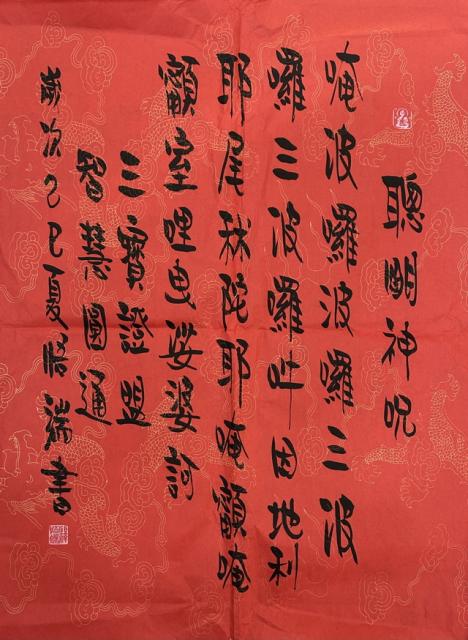 聰明神咒
唵波囉波囉三波
囉三波囉吽因地利
耶尾秣陀耶唵顲唵
顲室哩曳娑婆訶
三寶證盟
智慧圓通
歲次乙巳夏悟瀚書